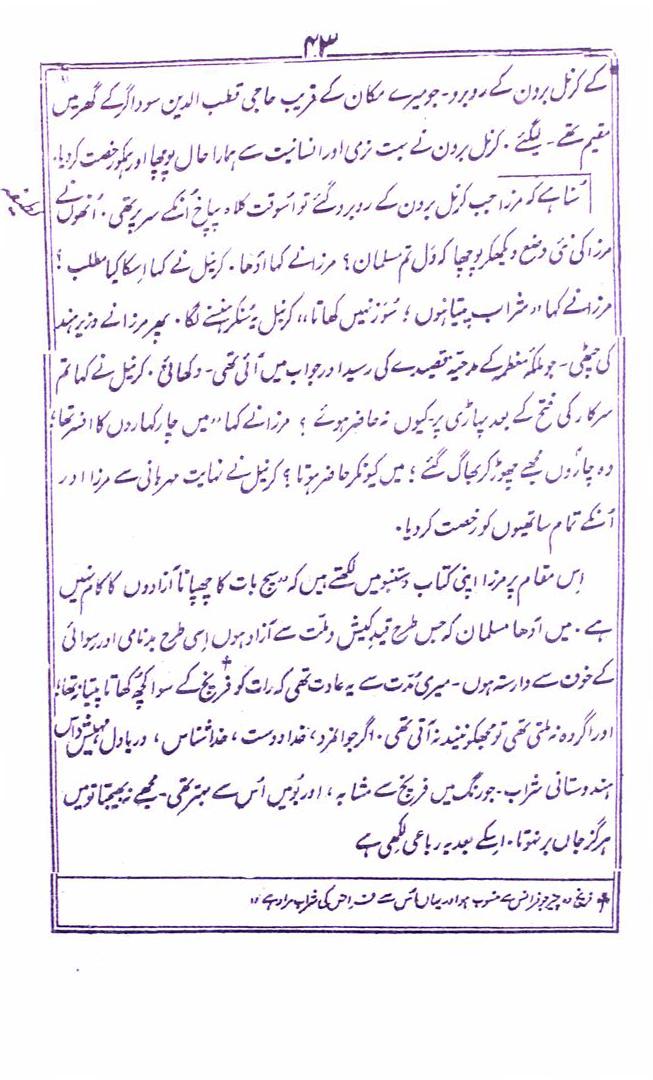 ۴۳
کے کرنل برون کے روبرو۔ جو میرے مکان کے قریب حاجی قطب الدین سوداگر کے گھر میں
مقیم تھے۔ لیگئے۔ کرنل برون نے بہت نرمی اور انسانیت سے ہمارا حال پوچھا اور ہمکو رخصت کردیا۔
سُنا ہے کہ مرزا جب کرنل برون کے روبرو گئے تو اسوقت کلاہ پپاخ اُنکے سر پر تھی۔ اُنھوں نے
مرزا کی نئی وضع دیکھکر پوچھا کہ ول تم مسلمان؟ مرزا نے کہا آدھا۔ کرنیل نے کہا اِسکا کیا مطلب؟
مرزا نے کہا "شراب پیتا ہوں؛ سُور نہیں کھاتا" کرنیل یہ سُنکر ہنسنے لگا۔ پھر مرزا نے وزیر ہند
کی چٹھی۔ جو ملکہ معظمہ کے مدحیہ قصیدے کی رسید اور جواب میں آئی تھی۔ دکھائی۔ کرنیل نے کہا تم
سرکار کی فتح کے بعد پہاڑی پر کیوں نہ حاضر ہوئے؟ مرزا نے کہا "میں چار کہاروں کا افسر تھا؛
وہ چاروں مجھے چھوڑ کر بھاگ گئے؛ میں کیونکر حاضر ہوتا؟ کرنیل نے نہایت مہربانی سے مرزا اور
اُنکے تمام ساتھیوں کو رخصت کردیا۔
اِس مقام پر مرزا اپنی کتاب دستنبو میں لکھتے ہیں کہ "سچ بات کا چھپانا آزادوں کا کام نہیں
ہے۔ میں آدھا مسلمان کہ جس طرح قید کیش و ملت سے آزاد ہوں اِسی طرح بدنامی اور رسوائی
کے خوف سے وارستہ ہوں۔ میری مُدّت سے یہ عادت تھی کہ رات کو فرینچ† کے سوا کچھ کھاتا پیتا نہ تھا؛
اور اگر وہ نہ ملتی تھی تو مجھکو نیند نہ آتی تھی۔ اگر جوانمرد، خدا دوست، خدا شناس، دریا دل مہیش داس
ہندوستانی شراب۔ جو رنگ میں فرینچ سے مشابہ، اور بُو میں اُس سے بہتر تھی۔ مجھے نہ بھیجتا تو میں
ہرگز جاں بر نہوتا۔ اِسکے بعد یہ رباعی لکھی ہے
† فرینچ وہ چیز جو فرانس سے منسوب ہو اور یہاں اُس سے فرانس کی شراب مراد ہے ۱۲